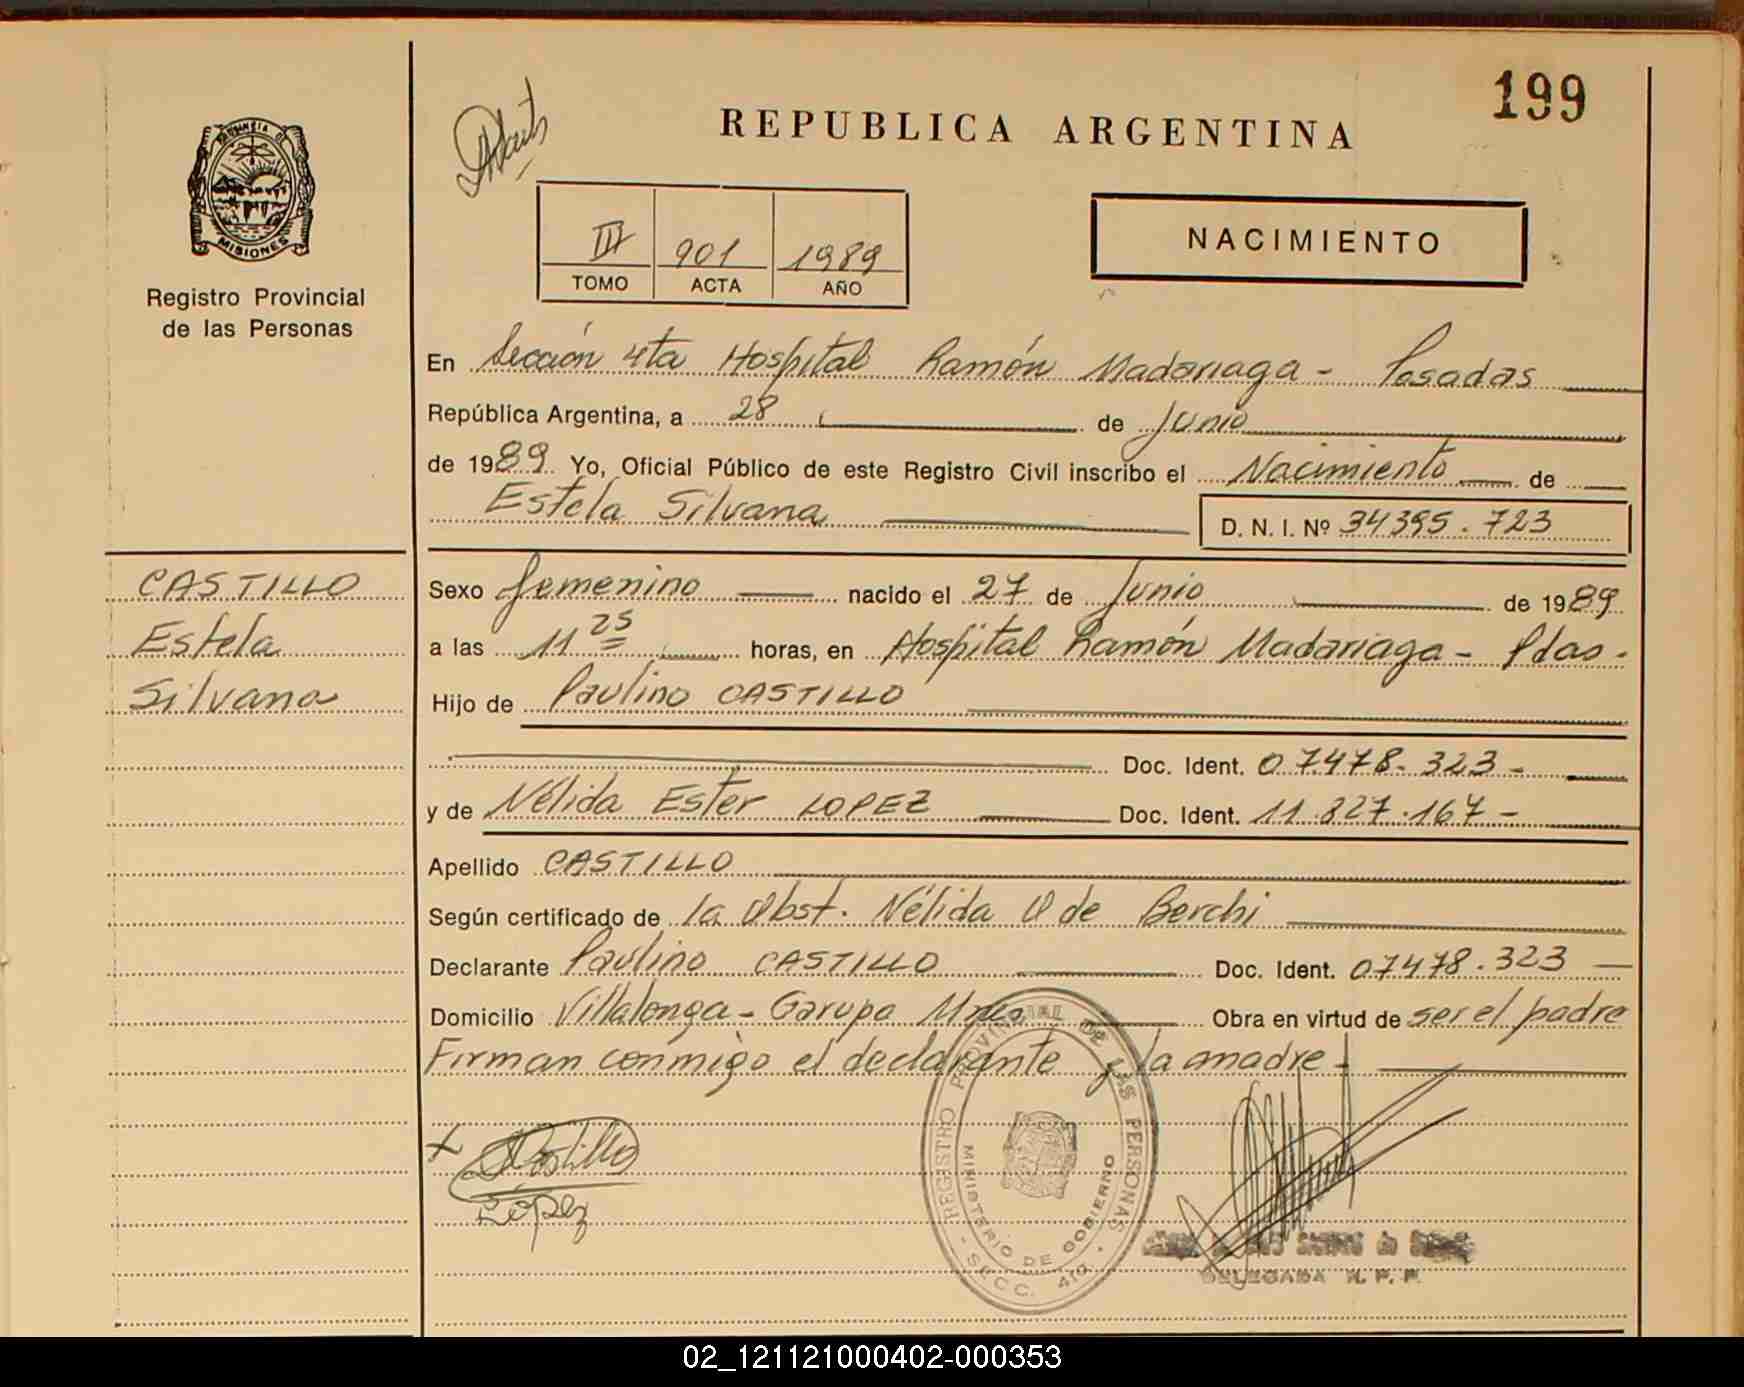 199
REPUBLICA ARGENTINA
PROVINCIA DE
MISIONES
Registro Provincial
de las Personas
III 901 1989
TOMO ACTA AÑO
NACIMIENTO
En Sección 4ta Hospital Ramón Madariaga - Posadas
República Argentina, a 28 de Junio
de 1989 Yo, Oficial Público de este Registro Civil inscribo el Nacimiento de
Estela Silvana D. N. I. Nº 34395.723
CASTILLO
Estela
Silvana
Sexo femenino nacido el 27 de Junio de 1989
a las 11 25 horas, en Hospital Ramón Madariaga - Pdas.
Hijo de Paulino CASTILLO
Doc. Ident. 07478.323 -
y de Nélida Ester LOPEZ Doc. Ident. 11.827.167 -
Apellido CASTILLO
Según certificado de la Obst. Nélida de Berchi
Declarante Paulino CASTILLO Doc. Ident. 07478.323
Domicilio Villalonga - Garupa Mnes Obra en virtud de ser el padre
Firman conmigo el declarante y la madre -
REGISTRO PROVINCIAL DE LAS PERSONAS
MINISTERIO DE GOBIERNO
- SECC. 4ta -
Castillo
López
DELEGADA R. P. P.
02_121121000402-000353